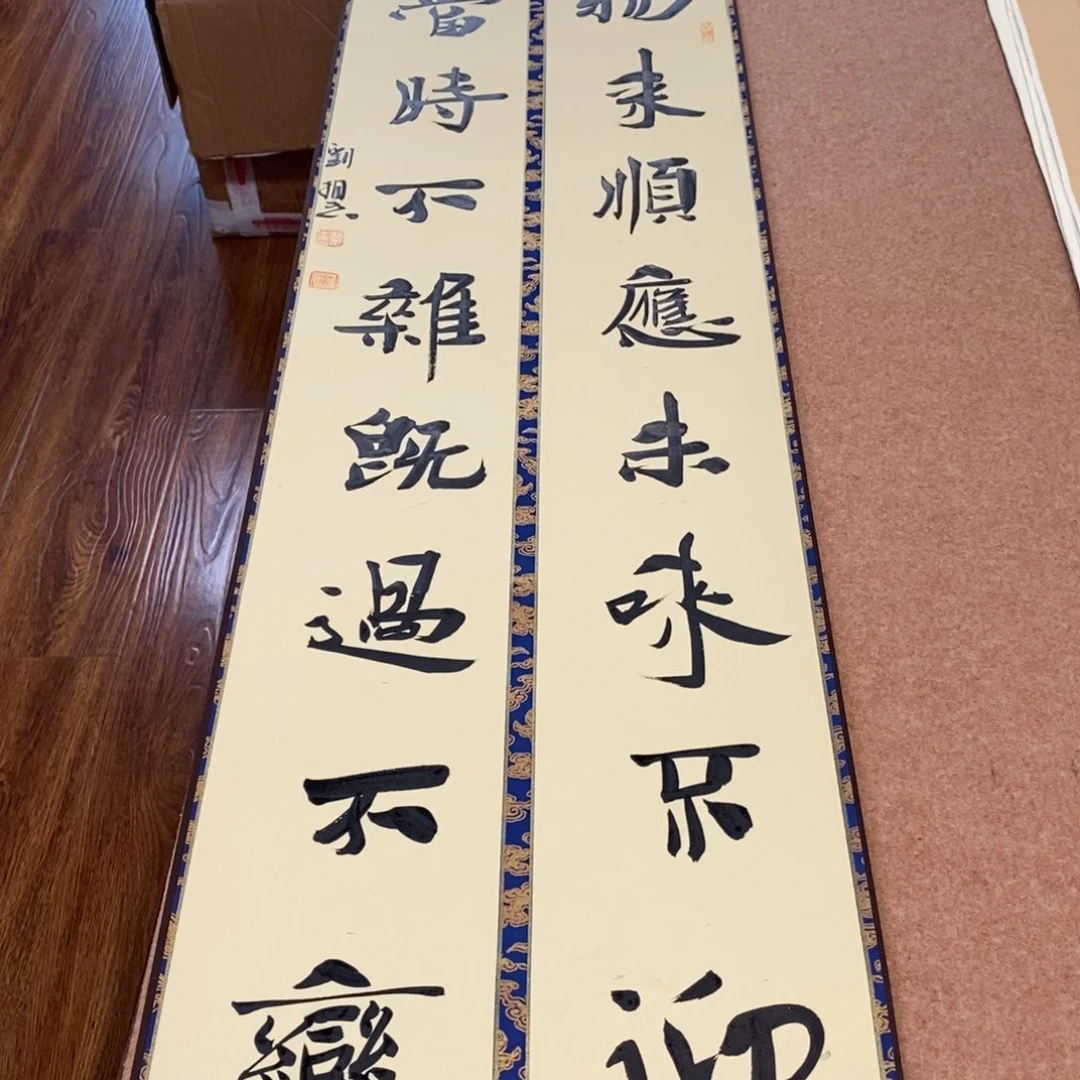 物來順應未來不迎
當時不雜既過不戀
劉